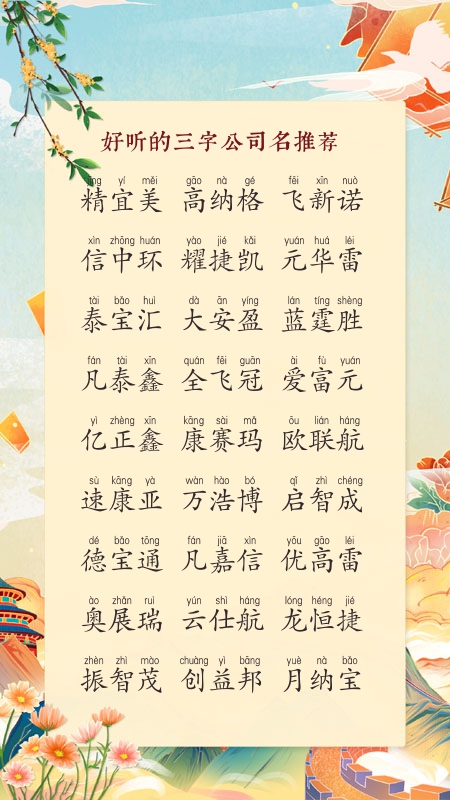 好听的三字公司名推荐
jīng yí měi gāo nà gé fēi xīn nuò
精宜美 高纳格 飞新诺
xìn zhōng huán yào jié kǎi yuán huá léi
信中环 耀捷凯 元华雷
tài bǎo huì dà ān yíng lán tíng shèng
泰宝汇 大安盈 蓝霆胜
fán tài xīn quán fēi guān ài fù yuán
凡泰鑫 全飞冠 爱富元
yì zhèng xīn kāng sài mǎ ōu lián háng
亿正鑫 康赛玛 欧联航
sù kāng yà wàn hào bó qǐ zhì chéng
速康亚 万浩博 启智成
dé bǎo tōng fán jiā xìn yōu gāo léi
德宝通 凡嘉信 优高雷
ào zhǎn ruì yún shì háng lóng héng jié
奥展瑞 云仕航 龙恒捷
zhèn zhì mào chuàng yì bāng yuè nà bǎo
振智茂 创益邦 月纳宝